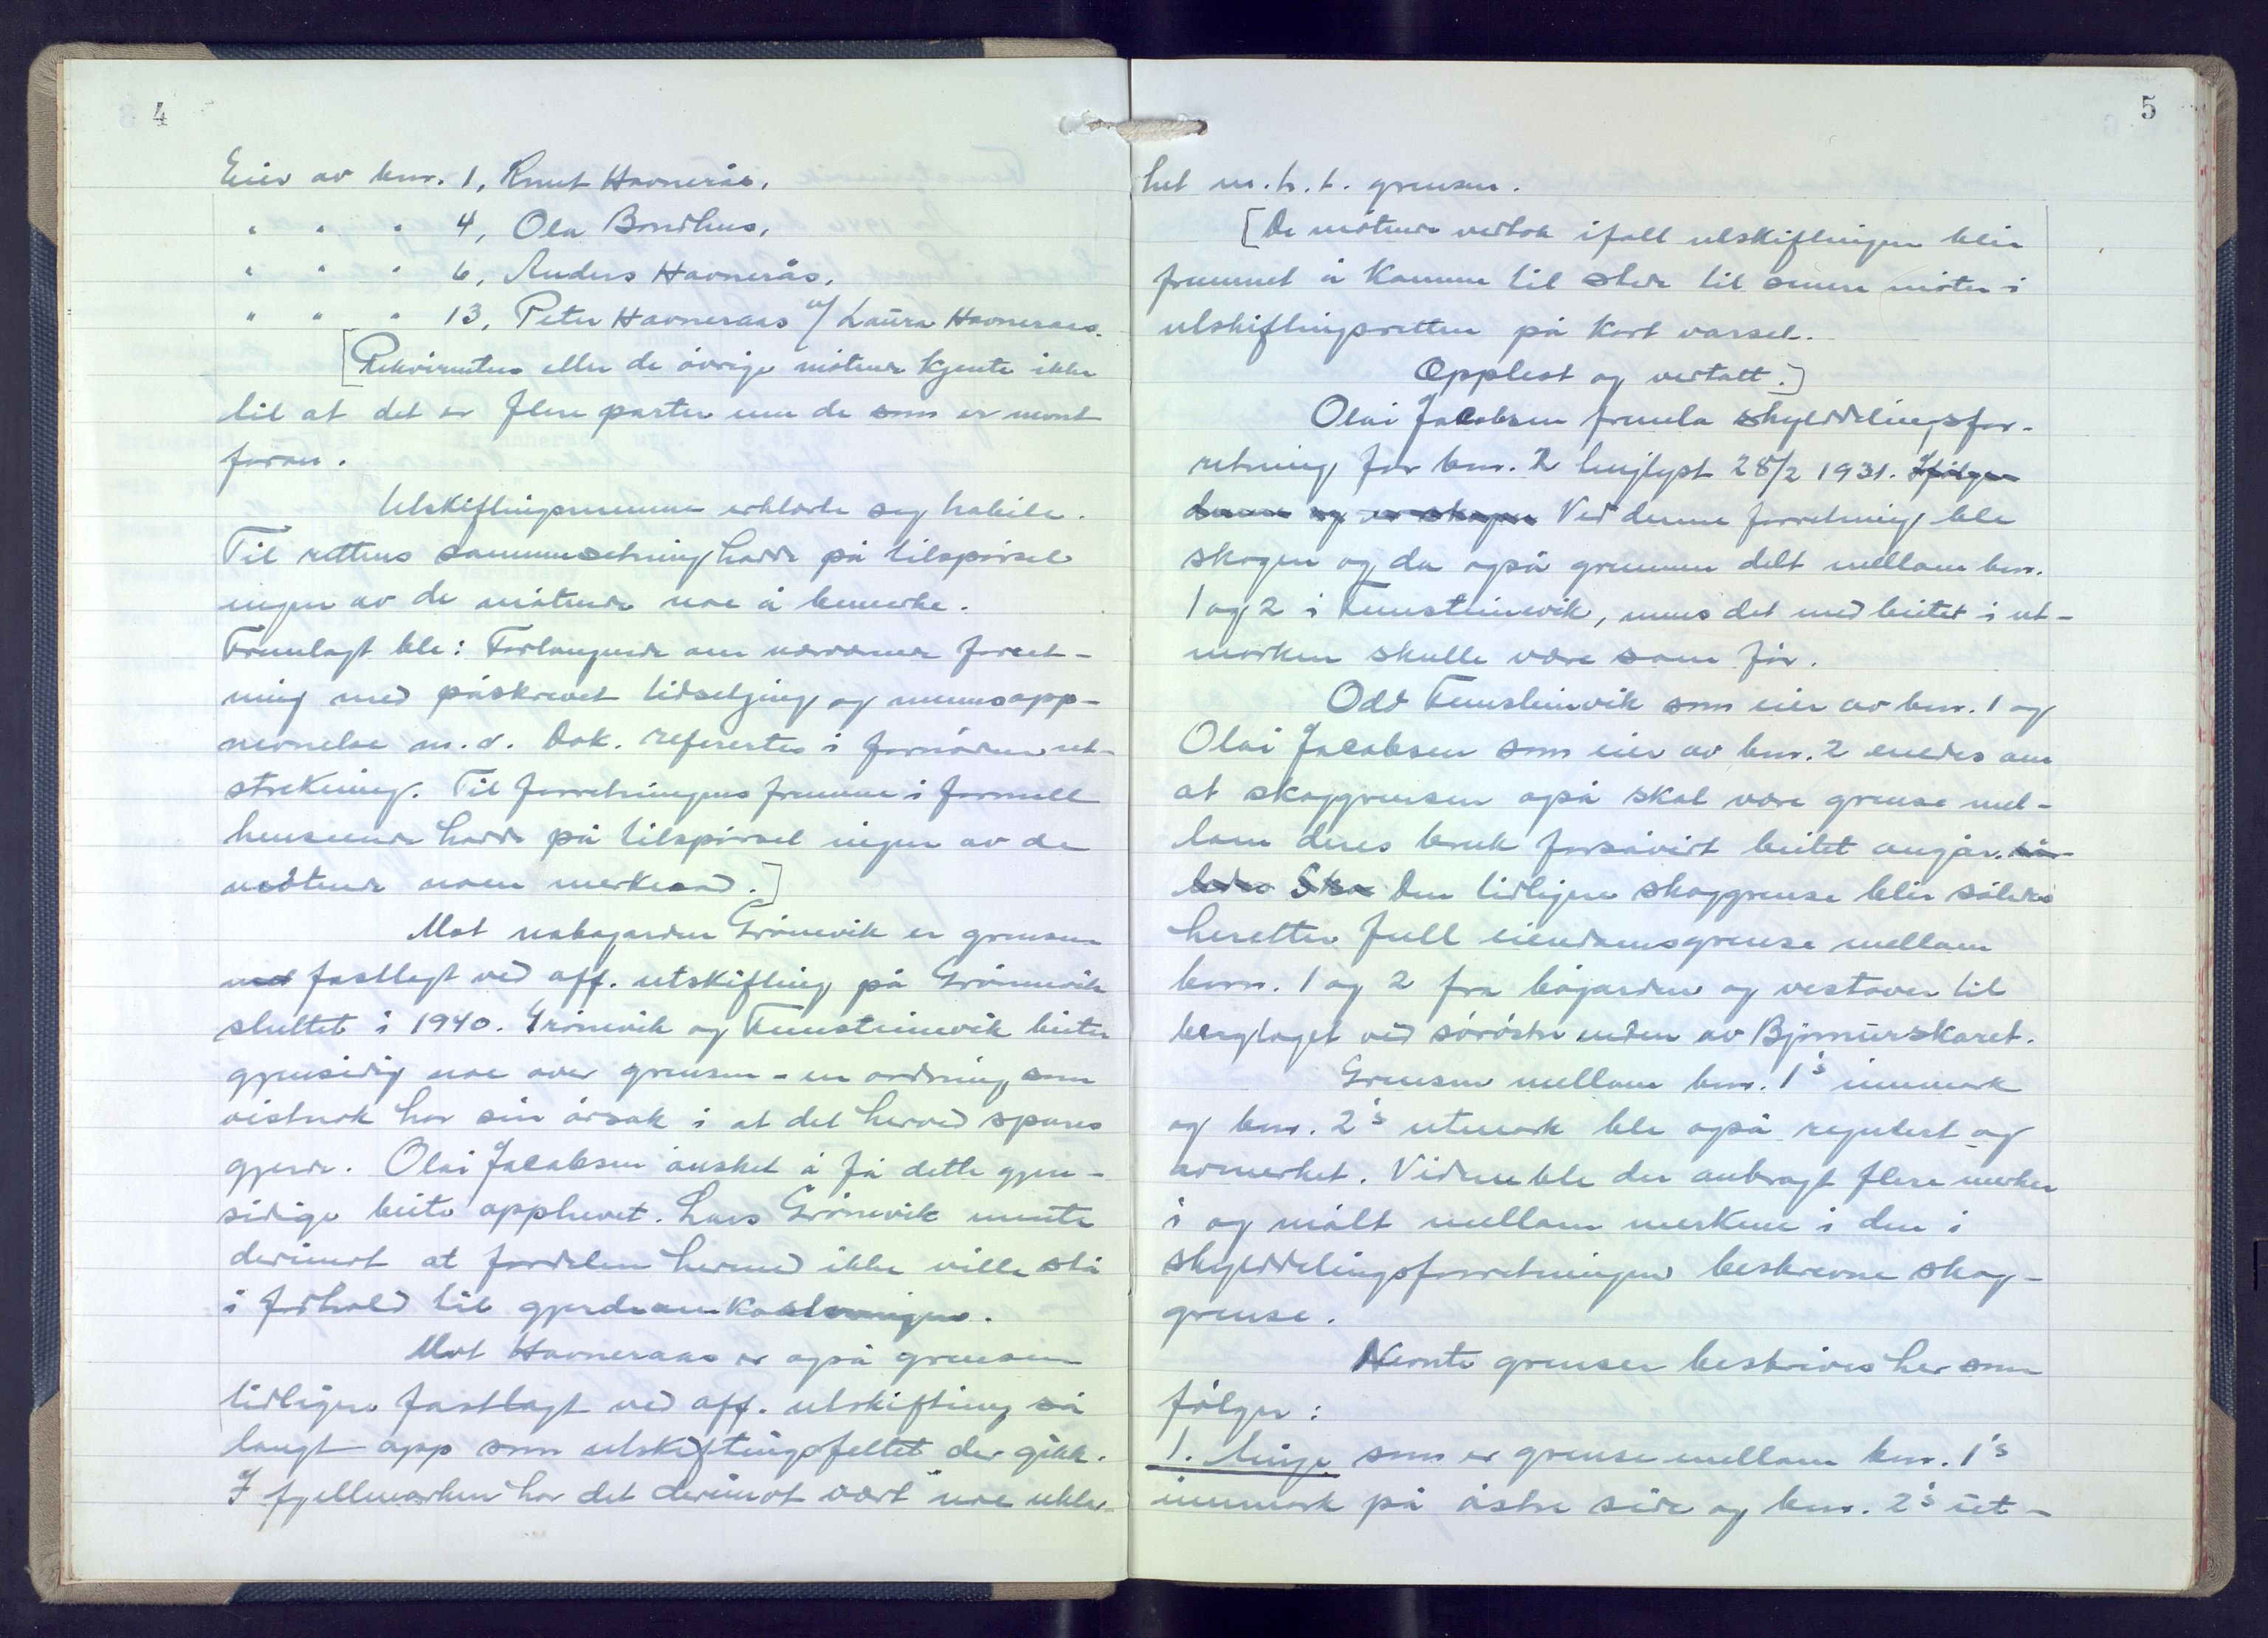 4
Eier av bnr. 1, Knut Havnerås,
" " " 4, Ola Bondhus,
" " " 6, Anders Havnerås,
" " " 13, Peter Havneraas v/ Laura Havneraas.
[Rekvirenten eller de øvrige møtende kjente ikke
til at det er flere parter enn de som er nevnt
foran.
Utskiftningsmennene erklærte seg habile.
Til rettens sammensetning hadde på tilspørsel
ingen av de møtende noe å bemerke.
Fremlagt ble: Forlangende om nærværende forret-
ning med påskrevet tidsetjing og mennsopp-
nevnelse m.v. Dok. refererte i fornøden ut-
strekning. Til forretningens fremme i formell
henseende hadde på tilspørsel ingen av de
møtende noen merknad.]
Mot nabogarden Grønevik er grensen
ved fastlagt ved off. utskifting på Grønnevik
sluttet i 1940. Grønevik og Teinsteinevik beiter
gjensidig noe over grensen - en ordning som
vistnok har sin årsak i at det herved spares
gjerde. Olai Jacobsen ønsket å få dette gjen-
sidige beite opphevet. Lars Grønevik mente
derimot at fordelen hermed ikke ville stå
i forhold til gjerdeomkostningen.
Mot Havneraas er også grensen
tidligere fastlagt ved off. utskifting så
langt opp som utskiftingsfeltet der gikk.
I fjellmarken har det derimot vært noe uklar-
5
het m.h.t. grensen.
[De møtende vedtok ifall utskiftningen blir
fremmet å komme til stede til senere møter i
utskiftningsretten på kort varsel.
Opplest og vedtatt.]
Olai Jacobsen fremla skylddelingsfor-
retning for bnr. 2 tinglyst 28/2 1931. Ifølge
denne og er skogen Ved denne forretning ble
skogen og da også grunnen delt mellom bnr.
1 og 2 i Teinsteinevik, mens det med beitet i ut-
marken skulle være som før.
Odd Teinsteinvik som eier av bnr. 1 og
Olai Jacobsen som eier av bnr. 2 enedes om
at skoggrensen også skal være grense mel-
lom deres bruk forsåvidt beitet angår. så-
ledes Sko Den tidligere skoggrense blir således
heretter full eiendomsgrense mellom
bnrn. 1 og 2 fra bøgarden og vestover til
berglaget ved sørøstre enden av Bjørnurskaret.
Grensen mellom bnr. 1's innmark
og bnr. 2's utmark ble også regulert og
avmerket. Videre ble der anbragt flere merker
i og målt mellom merkene i den i
skylddelingsforretningen beskrevne skog-
grense.
Nevnte grenser beskrives her som
følger:
1. linje som er grense mellom bnr. 1's
innmark på østre side og bnr. 2's ut-